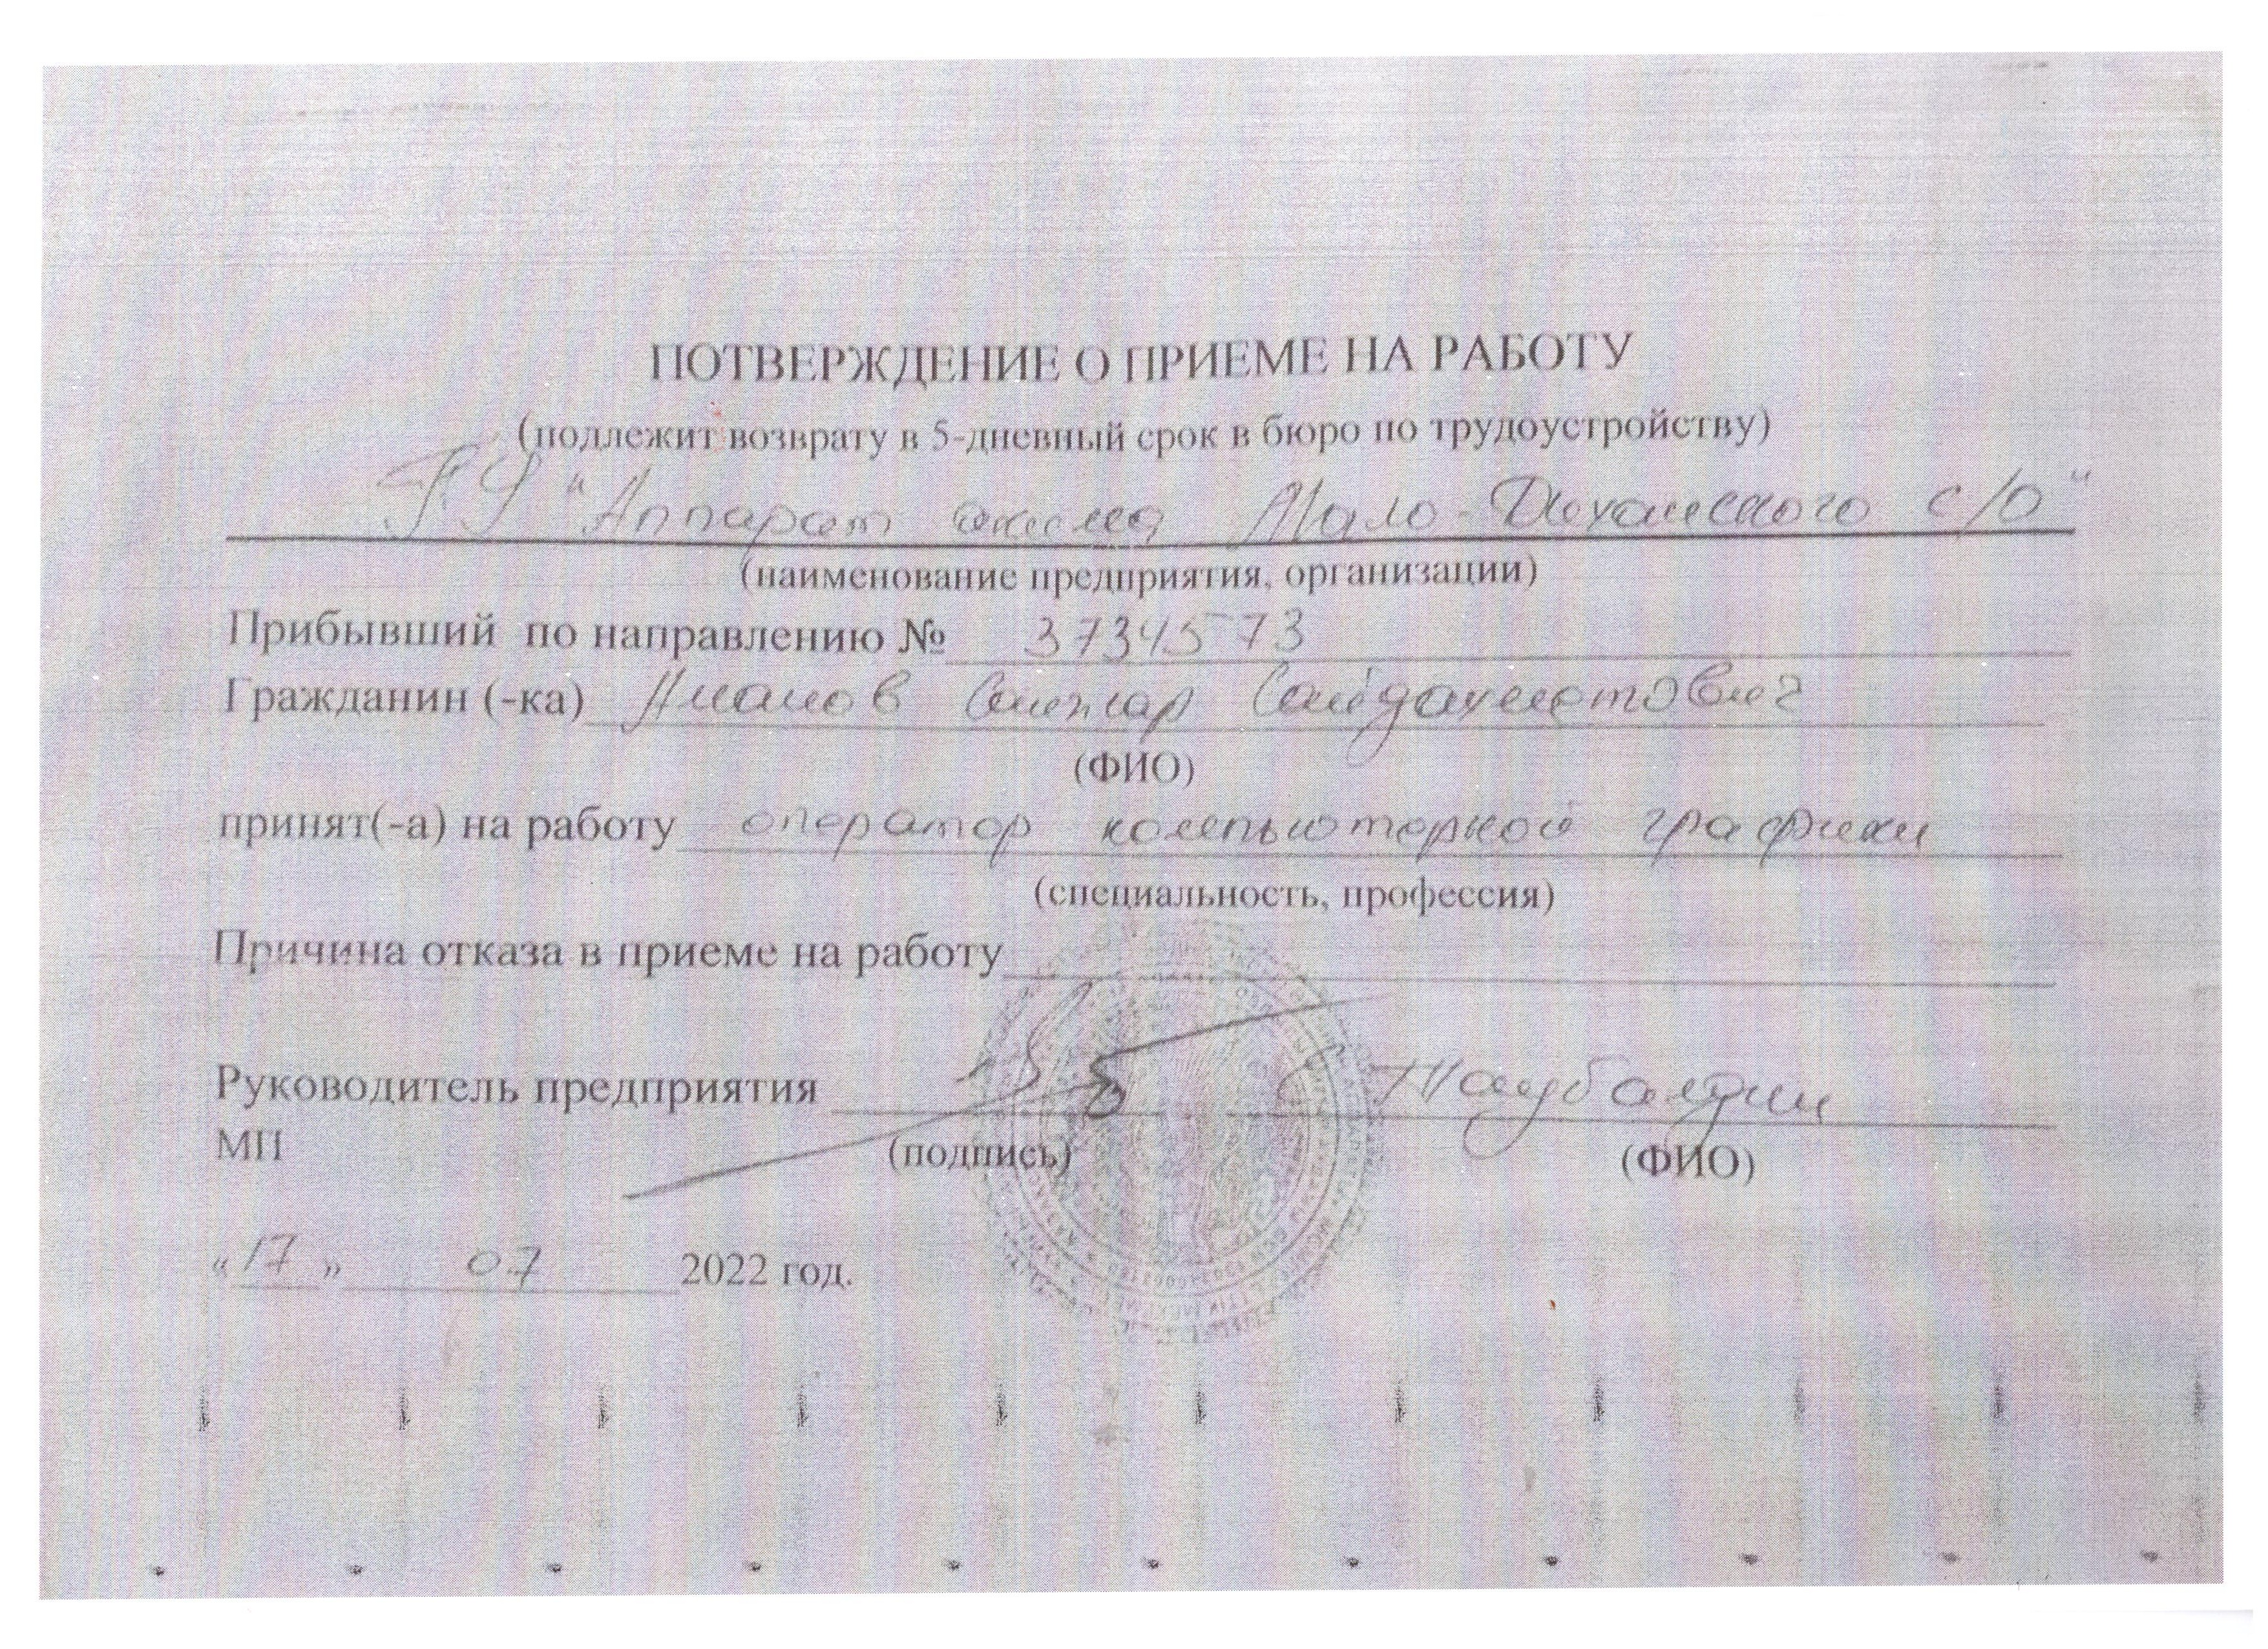 ПОТВЕРЖДЕНИЕ О ПРИЕМЕ НА РАБОТУ
(подлежит возврату в 5-дневный срок в бюро по трудоустройству)
ГУ "Аппарат акима Мало-Диханского с/о"
(наименование предприятия, организации)
Прибывший по направлению № 3734573
Гражданин (-ка) Сайдахметович
(ФИО)
принят(-а) на работу оператор компьютерной графики
(специальность, профессия)
Причина отказа в приеме на работу
Руководитель предприятия
МП (подпись) (ФИО)
«17» 07 2022 год.